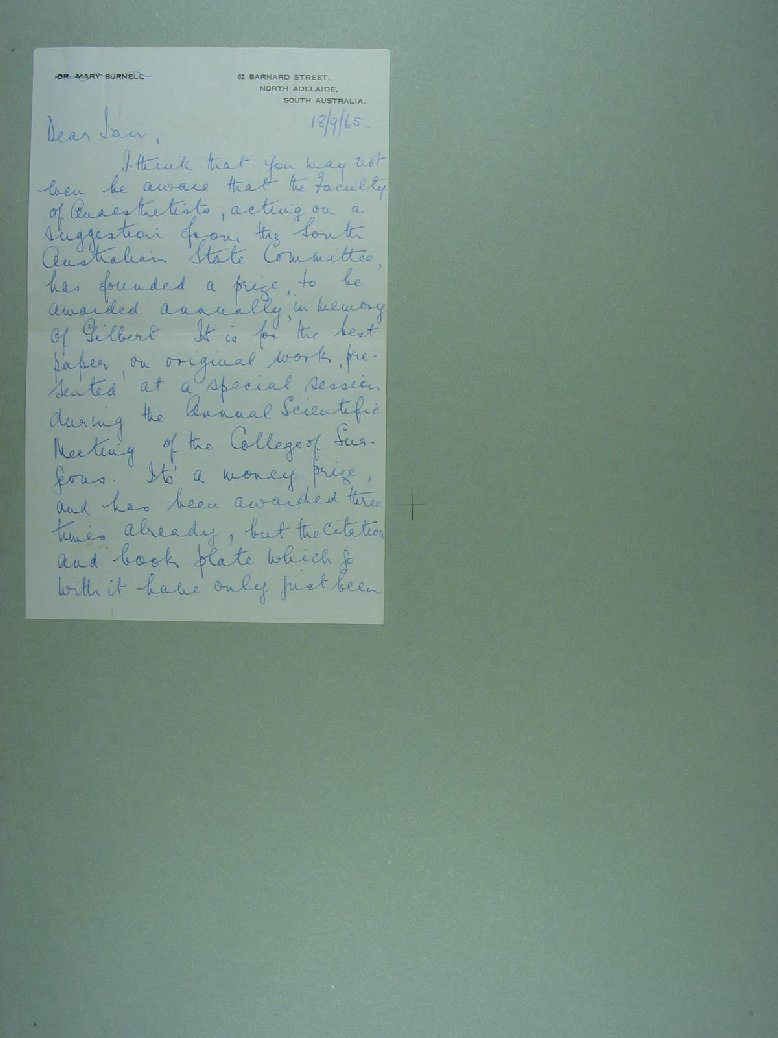 DR. MARY BURNELL
62 BARNARD STREET,
NORTH ADELAIDE,
SOUTH AUSTRALIA.
18/9/65.
Dear Iain,
I think that you may not
even be aware that the Faculty
of Anaesthetists, acting on a
suggestion from the South
Australian State Committee,
has founded a prize, to be
awarded annually, in memory
of Gilbert. It is for the best
paper, on original work, pre-
sented at a special session
during the Annual Scientific
Meeting of the College of Sur-
geons. Its a money prize,
and has been awarded three
times already, but the citation
and book plate which go
with it have only just been